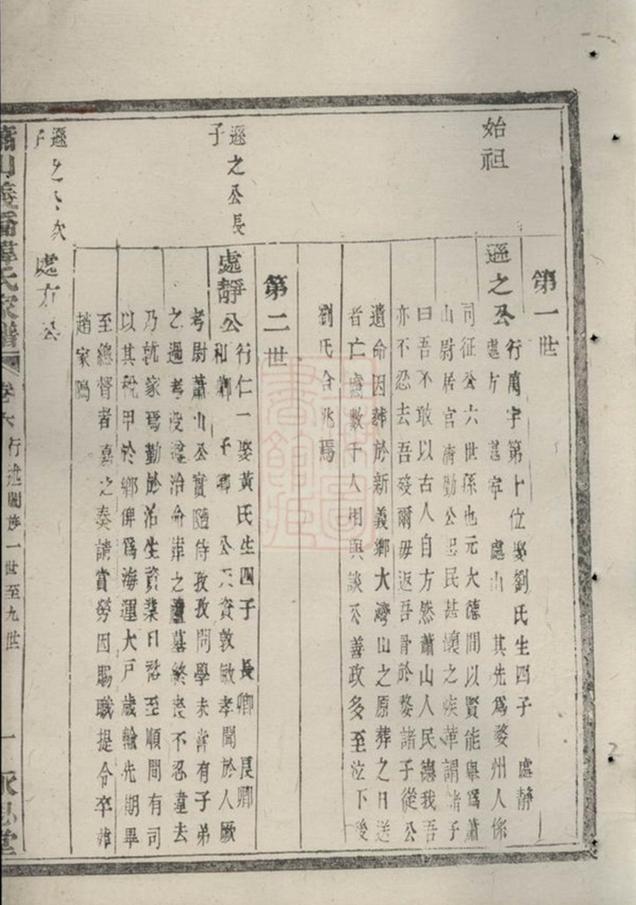 始祖
第一世
遜之公
行萬字第十位娶劉氏生四子 處靜
處方 處寧 處山 其先爲婺州人係
司征公六世孫也元大德間以賢能舉爲蕭
山尉居官清勤公忠民甚懷之疾革謂諸子
曰吾不敢以古人自方然蕭山人民戀我吾
亦不忍去吾歿爾毋返吾骨於婺諸子從公
遺命因葬於新義鄉大灣山之原葬之日送
者亡慮數千人相與談公善政多至泣下後
劉氏合兆焉
第二世
遜之公長
子
處靜公
行仁一 娶黃氏生四子 長卿 良卿
和卿 子卿 公天資敦敏孝聞於人厥
考尉蕭山公實隨侍孜孜問學未嘗有子弟
之過考没遵治命葬之廬墓終喪不忍違去
乃就家焉勤於治生資業日裕至順間有司
以其税甲於鄉俾爲海運大戸歳輸先期畢
至總督者嘉之奏請賞勞因賜職提令卒葬
趙家塢
遜之公次
子
處方公
蕭山義橋韓氏家譜
卷六 行述閣族一世至九世
一